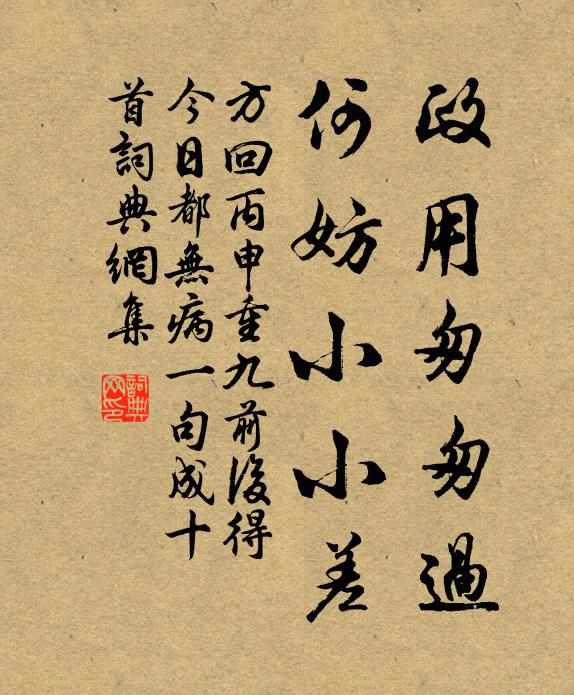 政用匆匆過
何妨小小差
方回丙申重九前後得
今日都無病一句成十
首詞典網集
詞典網印